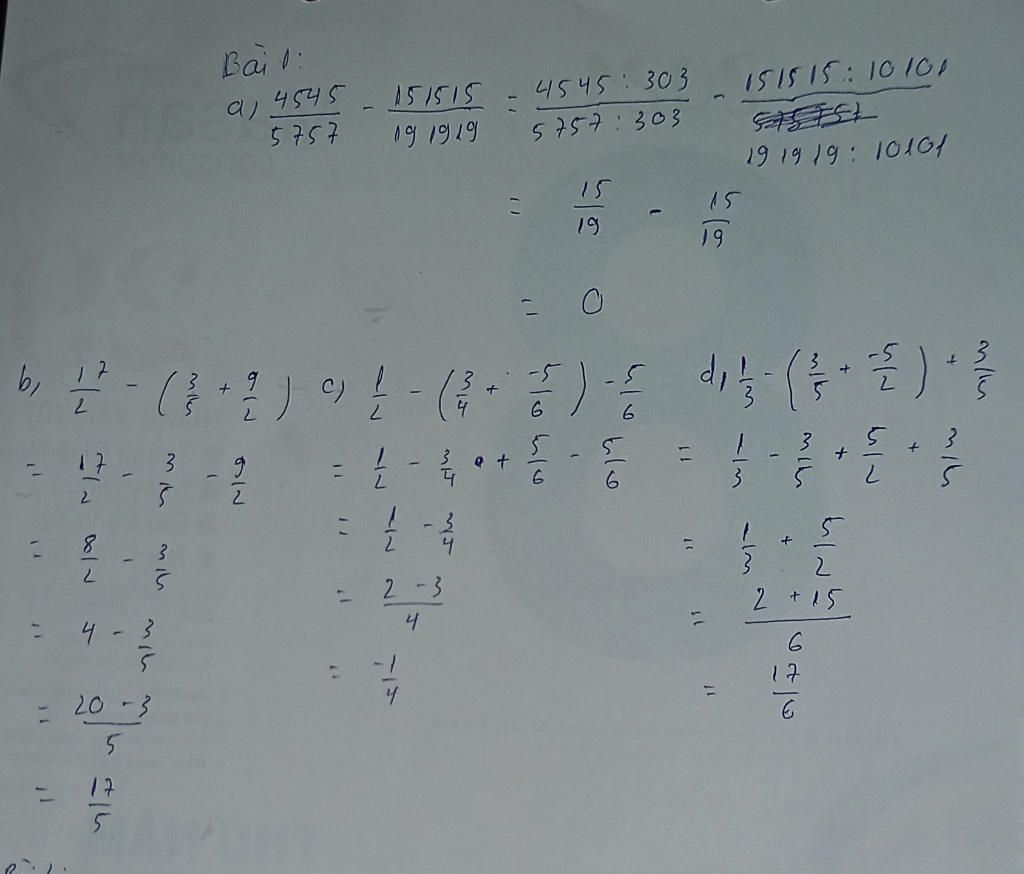 Bài 1:
a, 4545/5757 - 151515/191919 = 4545 : 303/5757 : 303 - 151515 : 10101/191919 : 10101
= 15/19 - 15/19
= 0
b, 17/2 - (3/5 + 9/2)
= 17/2 - 3/5 - 9/2
= 8/2 - 3/5
= 4 - 3/5
= 20 - 3/5
= 17/5
c, 1/2 - (3/4 + -5/6) - 5/6
= 1/2 - 3/4 + 5/6 - 5/6
= 1/2 - 3/4
= 2 - 3/4
= -1/4
d, 1/3 - (3/5 + -5/2) + 3/5
= 1/3 - 3/5 + 5/2 + 3/5
= 1/3 + 5/2
= 2 + 15/6
= 17/6